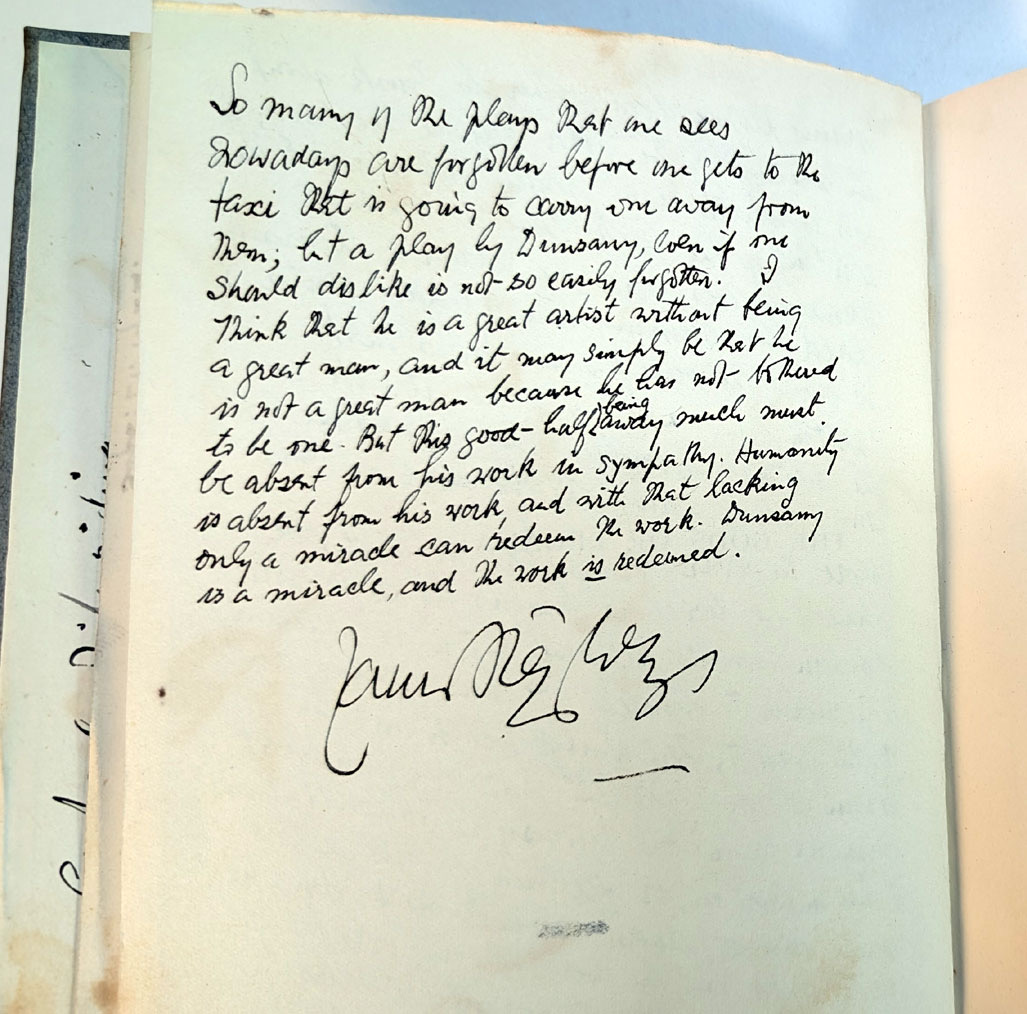 So many of the plays that one sees
nowadays are forgotten before one gets to the
taxi that is going to carry one away from
them; but a play by Dunsany, even if one
should dislike is not so easily forgotten. I
think that he is a great artist without being
a great man, and it may simply be that he
is not a great man because he has not bothered
to be one. But this good-half being away much must
be absent from his work in sympathy. Humanity
is absent from his work, and with that lacking
only a miracle can redeem the work. Dunsany
is a miracle, and the work is redeemed.
James